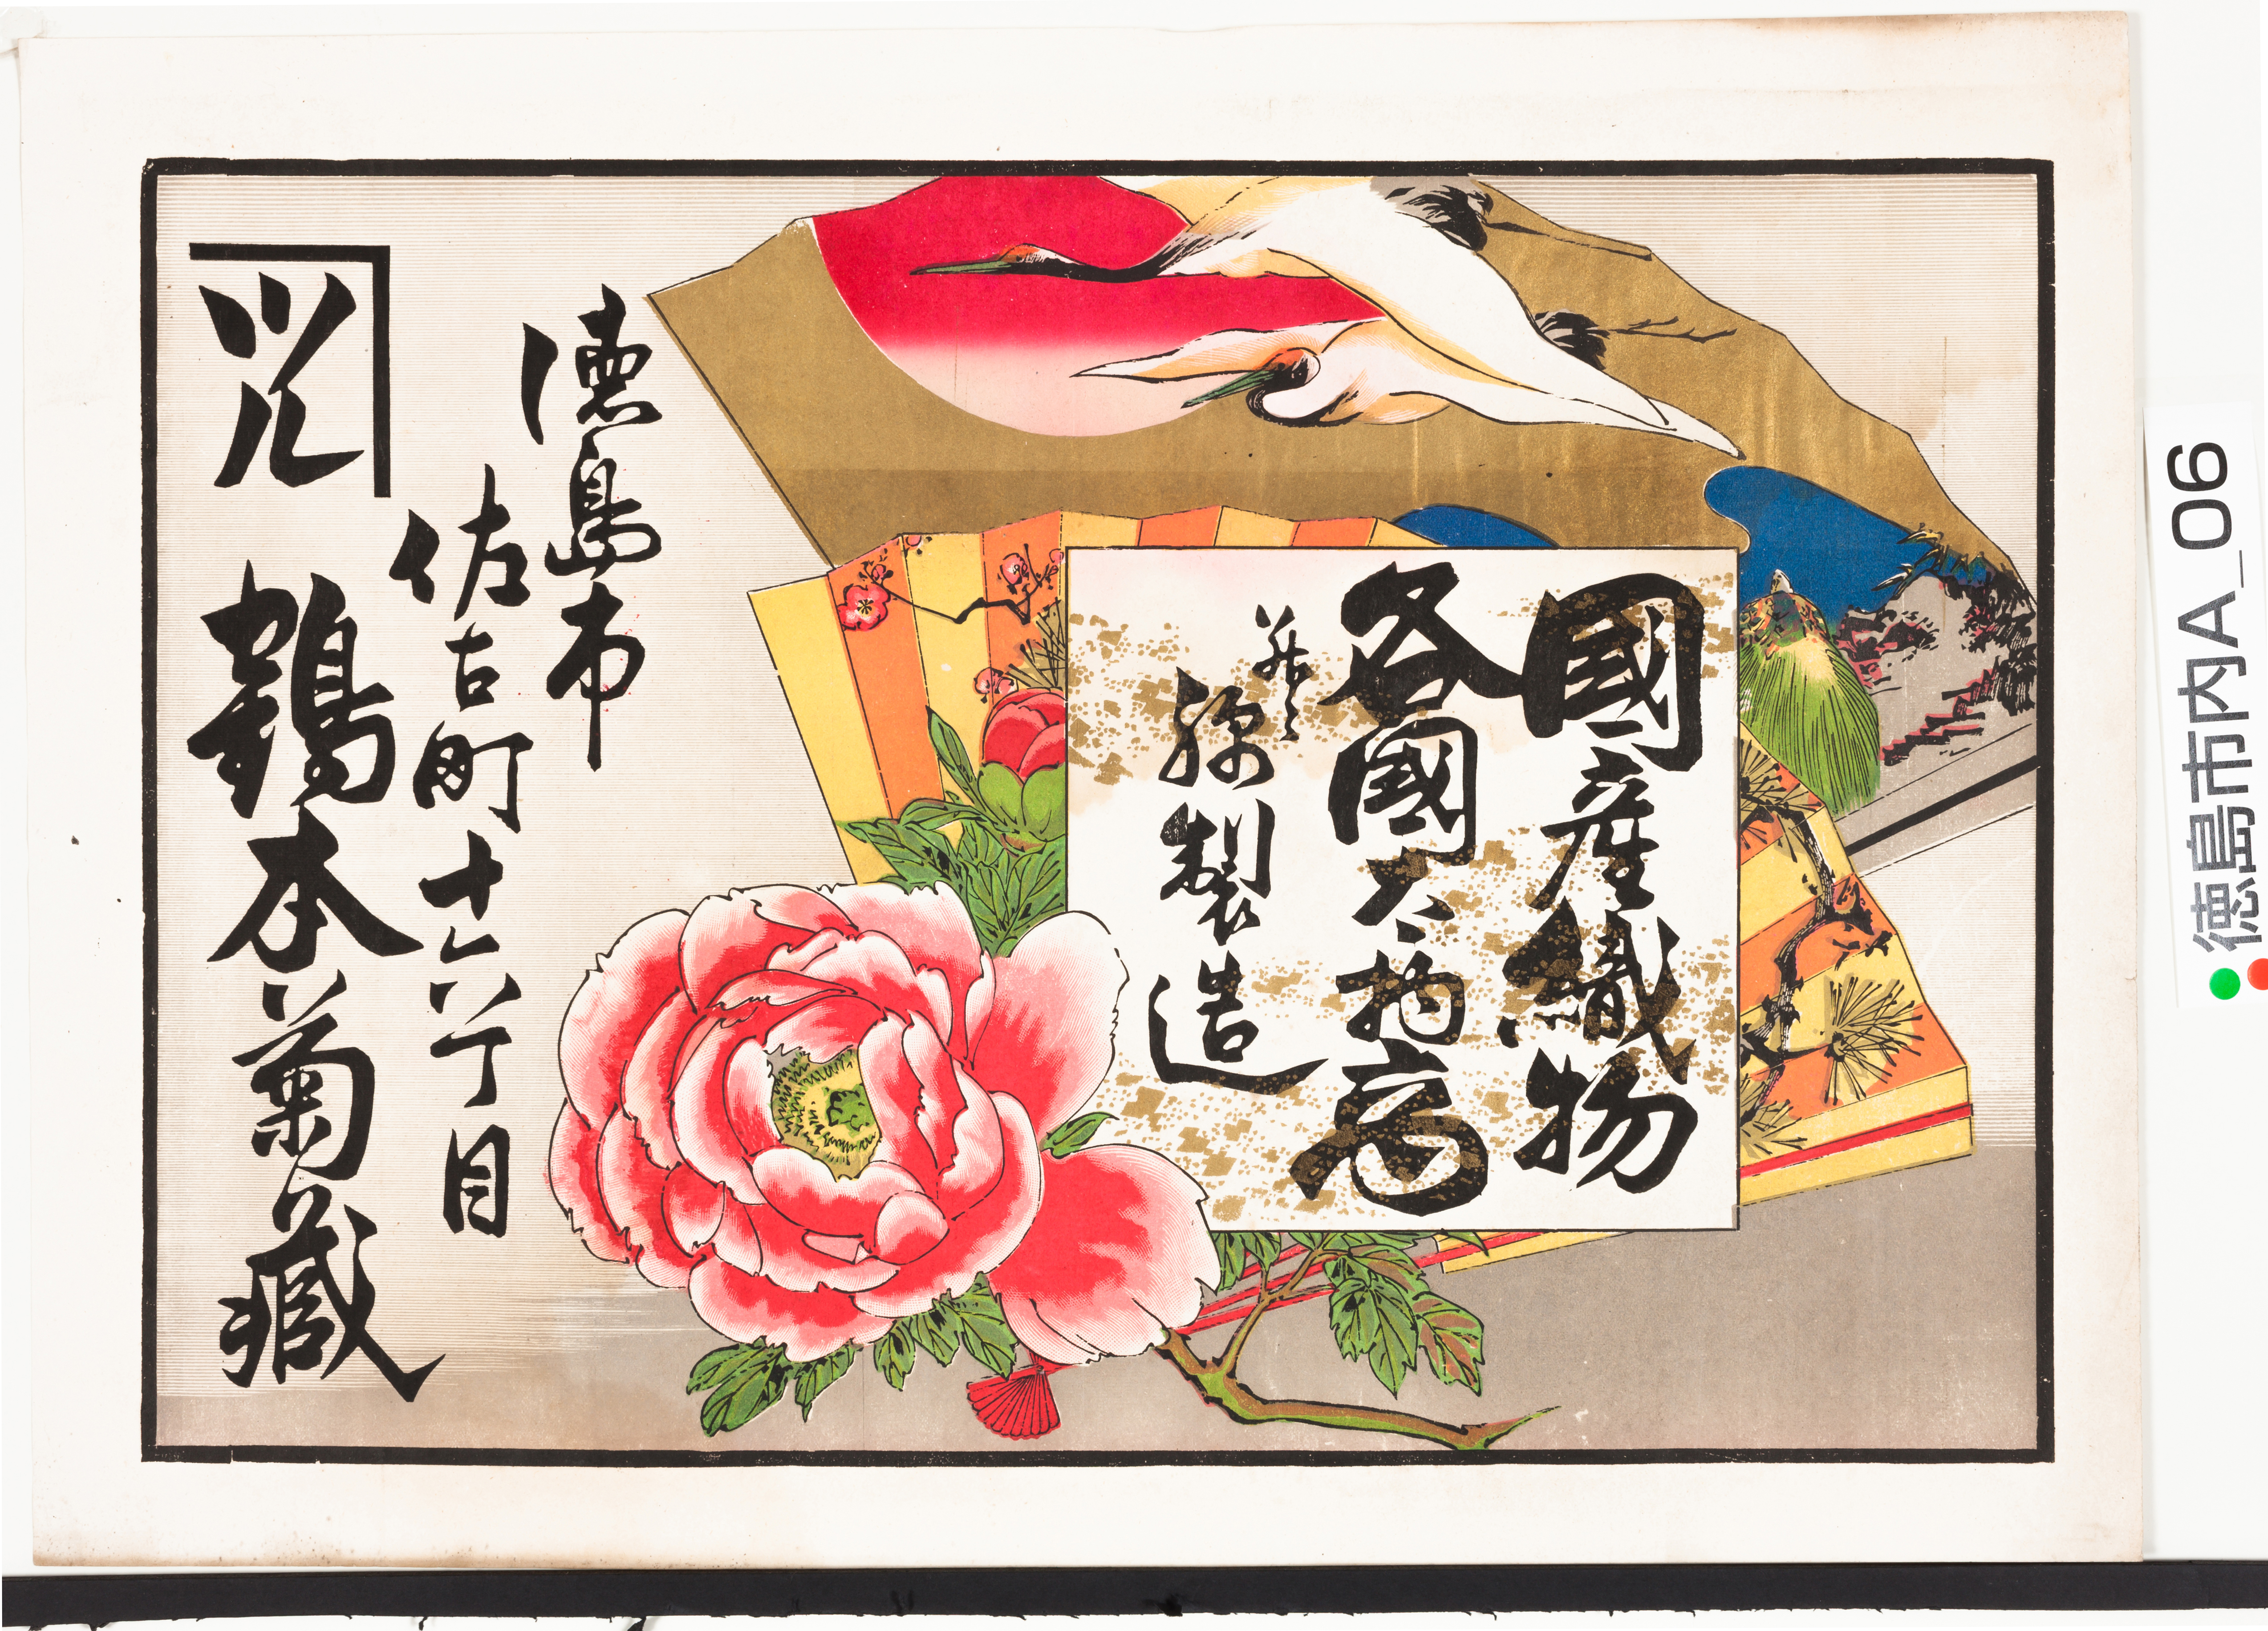 國産織物
各國太物商
并ニ
製造
徳島市
佐古町十六丁目
ツル
鶴本菊藏
徳島市内A_06